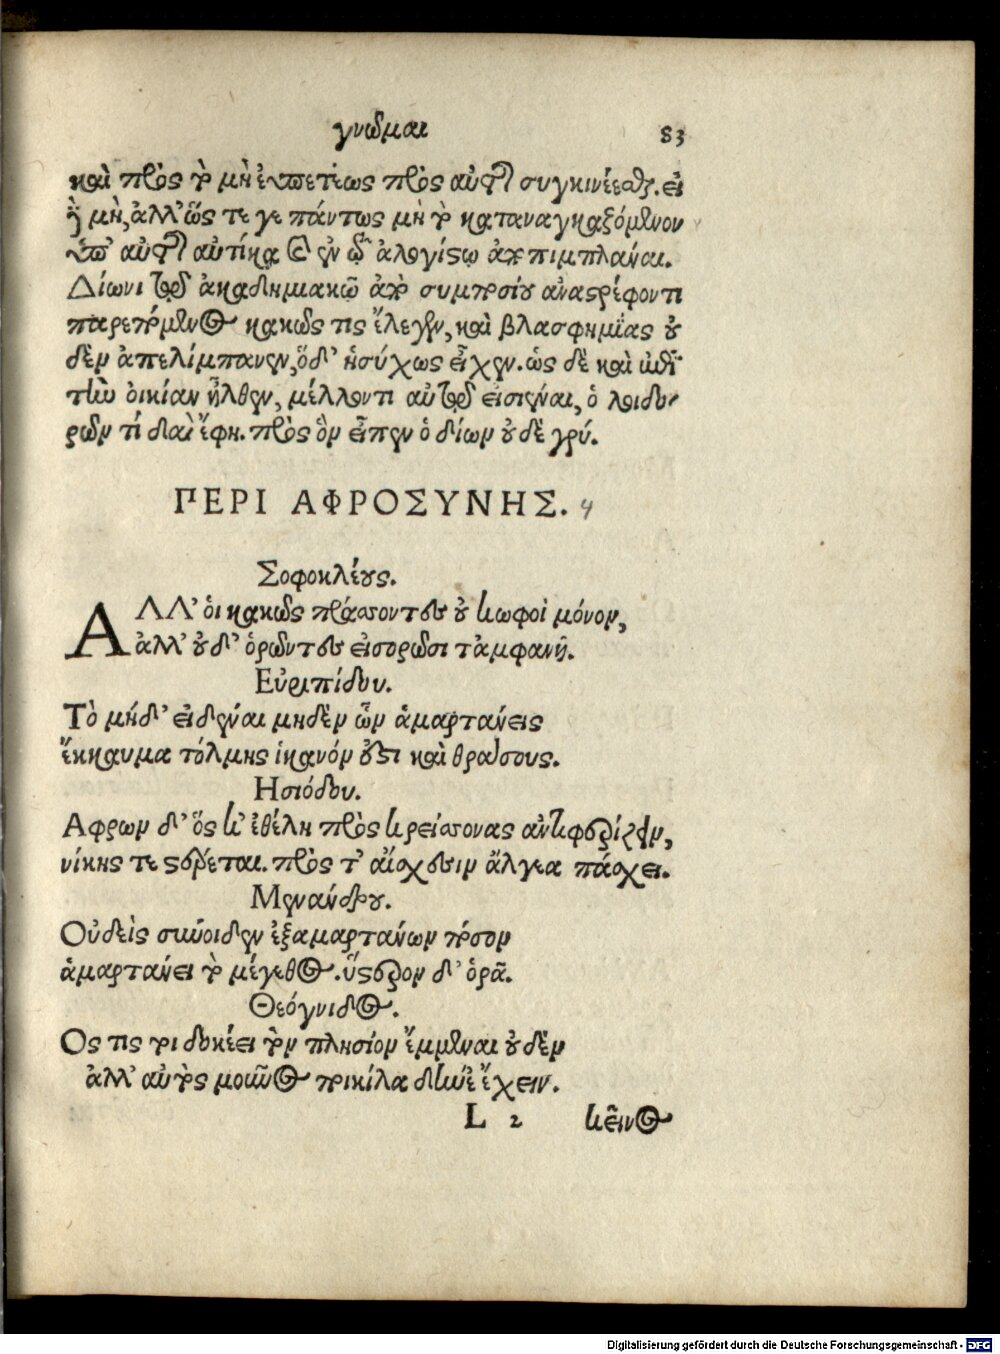 γνῶμαι 83
καὶ πρὸς τὸ μὴ εὐπετέως πρὸς αὐτῶν συγκινέεσθαι. εἰ
ἢ μὴ, ἀλλ' ὥς τε γε πάντως μὴ τὸ καταναγκαξόμενον
ὑπ' αὐτῶν αὐτίκα καὶ ἐν τῷ ἀλογίστῳ
Δίωνι τῷ ἀκαδημιακῷ ἀπὸ συμποσίου ἀναστρέφοντι
παρεπόμενος κακῶς τις ἔλεγεν, καὶ βλασφημίας οὐ
δὲν ἀπελίμπανεν, ὅδ' ἡσύχως εἶχεν. ὡς δὲ καὶ ἐπὶ
τὴν οἰκίαν ἦλθεν, μέλλοντι αὐτῷ εἰσιέναι, ὁ λοιδο-
ρῶν τί δαὶ ἔφη. πρὸς ὃν εἶπεν ὁ δίων οὐδὲ γρύ.
ΠΕΡΙ ΑΦΡΟΣΥΝΗΣ. 4
Σοφοκλέους.
ΑΛΛ' οἱ κακῶς πράσσοντες οὐ κωφοὶ μόνον,
ἀλλ' οὐδ' ὁρῶντες εἰσορῶσι τἀμφανῆ.
Εὐριπίδου.
Τὸ μήδ' εἰδέναι μηδὲν ὧν ἁμαρτάνεις
ἔκκαυμα τόλμης ἱκανόν ἐστι καὶ θράσους.
Ησιόδου.
Αφρων δ' ὅς κ' ἐθέλη πρὸς κρείσσονας ἀντιφερίζειν,
νίκης τε στέρεται. πρὸς τ' αἴσχεσιν ἄλγεα πάσχει.
Μενάνδρου.
Οὐδεὶς σύνοιδεν ἐξαμαρτάνων πόσον
ἁμαρτάνει τὸ μέγεθος. ὕστερον δ' ὁρᾷ.
Θεόγνιδος.
Ος τις τοι δοκέει τὸν πλησίον ἔμμεναι οὐδὲν
ἀλλ' αὐτὸς μοῦνος ποικίλα δήνε' ἔχειν.
L 2 κεῖνος
Digitalisierung gefördert durch die Deutsche Forschungsgemeinschaft - DFG